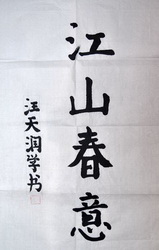 江山春意
汪天润学书